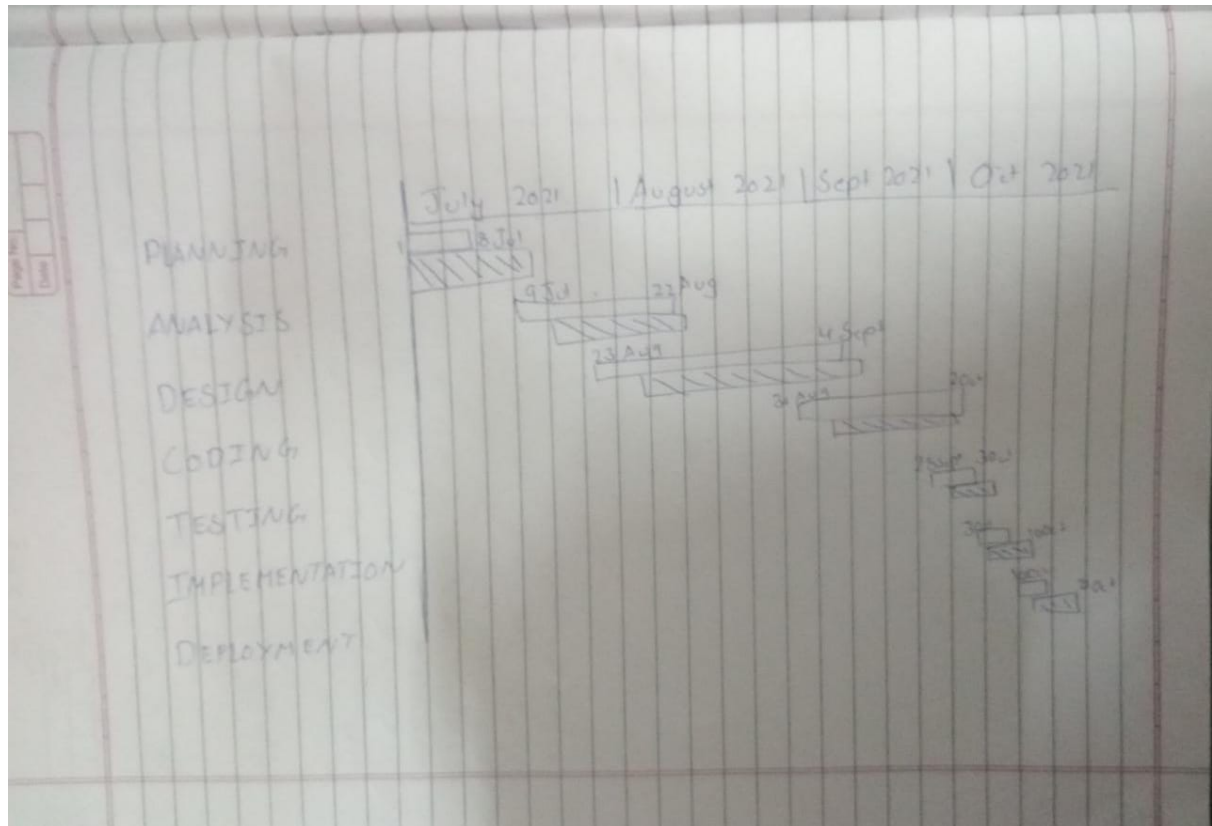 Page No.
Date
July 2021 | August 2021 | Sept 2021 | Oct 2021
PLANNING
1 8 Jul
ANALYSIS
9 Jul 22 Aug
DESIGN
23 Aug 4 Sept
CODING
TESTING
IMPLEMENTATION
DEPLOYMENT